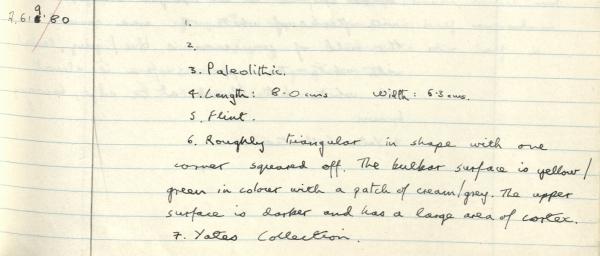 2,6.9.80
1.
2.
3. Paleolithic.
4. Length: 8.0 cms Width: 6.3 cms.
5. Flint.
6. Roughly triangular in shape with one
corner squared off. The bulbar surface is yellow/
green in colour with a patch of cream/grey. The upper
surface is darker and has a large area of cortex.
7. Yates Collection.